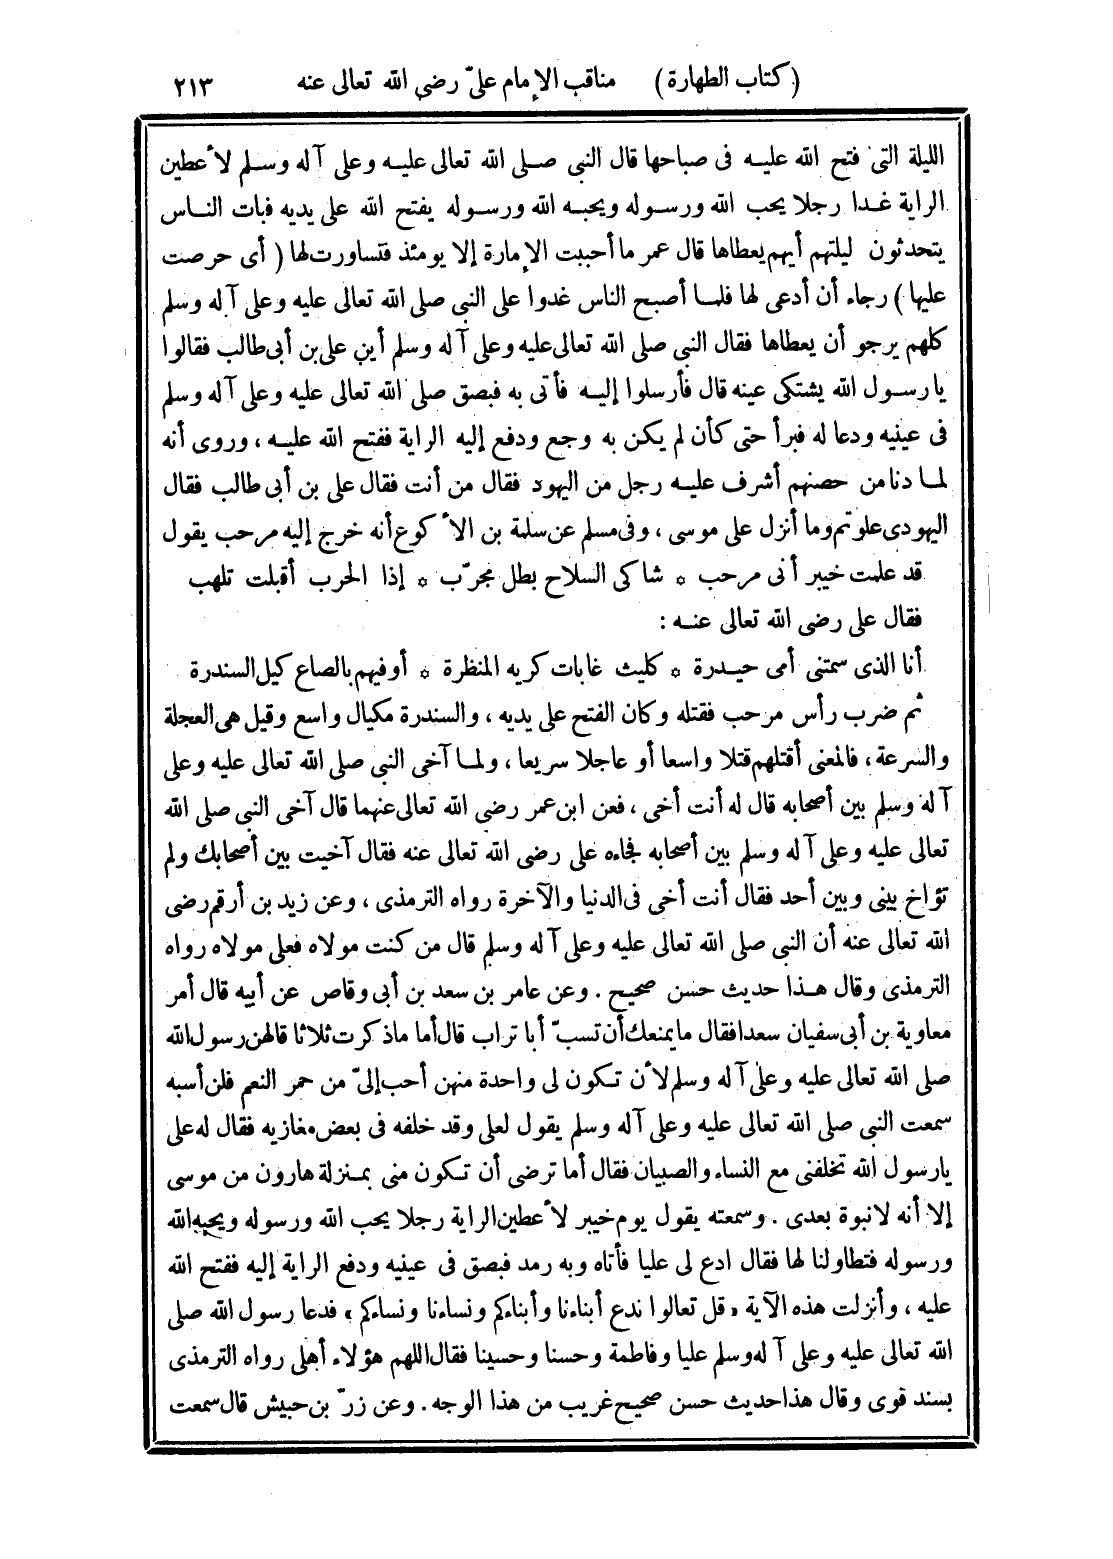 (كتاب الطهارة) مناقب الإمام علىّ رضى الله تعالى عنه ٢١٣
الليلة التى فتح الله عليه فى صباحها قال النبى صلى الله تعالى عليه وعلى آله وسلم لأعطين
الراية غدا رجلا يحب الله ورسوله ويحبه الله ورسوله يفتح الله على يديه فبات الناس
يتحدثون ليلتهم أيهم يعطاها قال عمر ما أحببت الإمارة إلا يومئذ فتساورت لها (أى حرصت
عليها) رجاء أن أدعى لها فلما أصبح الناس غدوا على النبى صلى الله تعالى عليه وعلى آله وسلم
كلهم يرجو أن يعطاها فقال النبى صلى الله تعالى عليه وعلى آله وسلم أين على بن أبى طالب فقالوا
يا رسول الله يشتكى عينه قال فأرسلوا إليه فأتى به فبصق صلى الله تعالى عليه وعلى آله وسلم
فى عينيه ودعا له فبرأ حتى كأن لم يكن به وجع ودفع إليه الراية ففتح الله عليه ، وروى أنه
لما دنا من حصنهم أشرف عليه رجل من اليهود فقال من أنت فقال على بن أبى طالب فقال
اليهودى علوتم وما أنزل على موسى ، وفى مسلم عن سلمة بن الأكوع أنه خرج إليه مرحب يقول
قد علمت خيبر أنى مرحب * شاكى السلاح بطل مجرّب * إذا الحرب أقبلت تلهب
فقال على رضى الله تعالى عنه :
أنا الذى سمتنى أمى حيدرة * كليث غابات كريه المنظرة * أوفيهم بالصاع كيل السندرة
ثم ضرب رأس مرحب فقتله وكان الفتح على يديه ، والسندرة مكيال واسع وقيل هى العجلة
والسرعة ، فالمعنى أقتلهم قتلا واسعا أو عاجلا سريعا ، ولما آخى النبى صلى الله تعالى عليه وعلى
آله وسلم بين أصحابه قال له أنت أخى ، فعن ابن عمر رضى الله تعالى عنهما قال آخى النبى صلى الله
تعالى عليه وعلى آله وسلم بين أصحابه فجاءه على رضى الله تعالى عنه فقال آخيت بين أصحابك ولم
تؤاخ بينى وبين أحد فقال أنت أخى فى الدنيا والآخرة رواه الترمذى ، وعن زيد بن أرقم رضى
الله تعالى عنه أن النبى صلى الله تعالى عليه وعلى آله وسلم قال من كنت مولاه فعلى مولاه رواه
الترمذى وقال هذا حديث حسن صحيح . وعن عامر بن سعد بن أبى وقاص عن أبيه قال أمر
معاوية بن أبى سفيان سعدا فقال ما يمنعك أن تسبّ أبا تراب قال أما ما ذكرت ثلاثا قالهن رسول الله
صلى الله تعالى عليه وعلى آله وسلم لأن تكون لى واحدة منهن أحب إلىّ من حمر النعم فلن أسبه
سمعت النبى صلى الله تعالى عليه وعلى آله وسلم يقول لعلى وقد خلفه فى بعض مغازيه فقال له على
يا رسول الله تخلفنى مع النساء والصبيان فقال أما ترضى أن تكون منى بمنزلة هارون من موسى
إلا أنه لا نبوة بعدى . وسمعته يقول يوم خيبر لأعطين الراية رجلا يحب الله ورسوله ويحبه الله
ورسوله فتطاولنا لها فقال ادع لى عليا فأتاه وبه رمد فبصق فى عينيه ودفع الراية إليه ففتح الله
عليه ، وأنزلت هذه الآية «قل تعالوا ندع أبناءنا وأبناءكم ونساءنا ونساءكم» فدعا رسول الله صلى
الله تعالى عليه وعلى آله وسلم عليا وفاطمة وحسنا وحسينا فقال اللهم هؤلاء أهلى رواه الترمذى
بسند قوى وقال هذا حديث حسن صحيح غريب من هذا الوجه . وعن زرّ بن حبيش قال سمعت